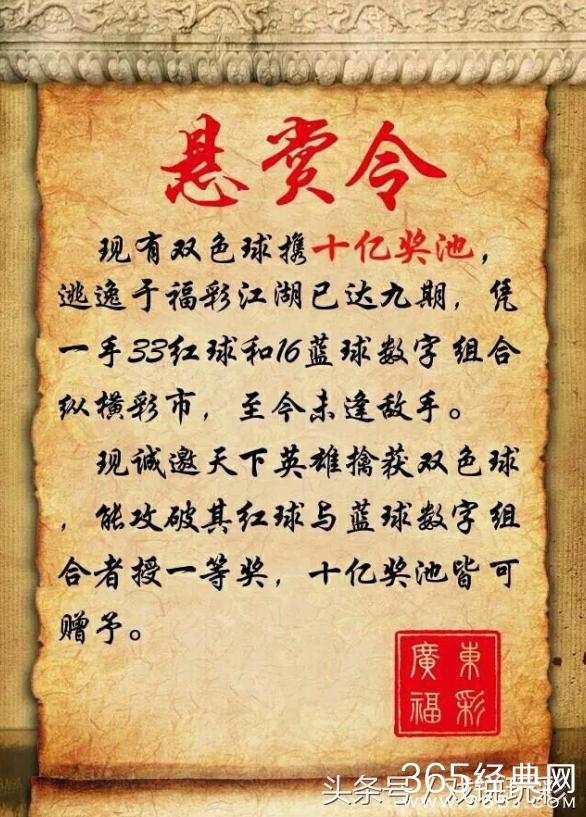 悬赏令
现有双色球携十亿奖池，
逃逸于福彩江湖已达九期，凭
一手33红球和16蓝球数字组合
纵横彩市，至今未逢敌手。
现诚邀天下英雄擒获双色球
，能攻破其红球与蓝球数字组
合者授一等奖，十亿奖池皆可
赠予。
廣東
福彩
头条号/戏说玩彩
365经典网